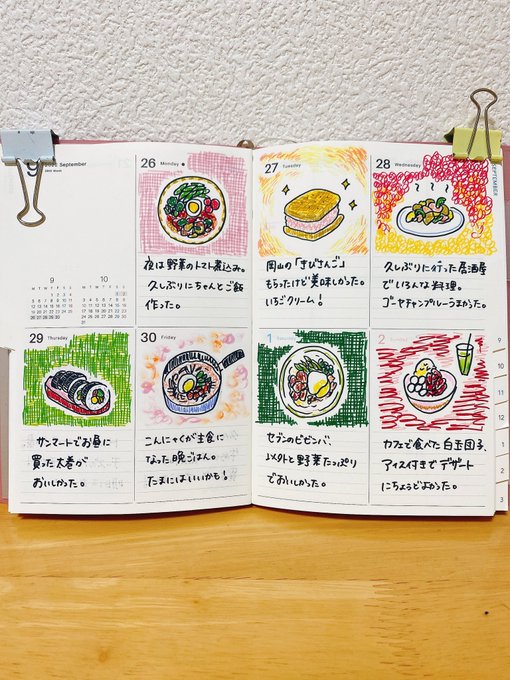 9
September
26 Monday
夜は野菜のトマト煮込み。
久しぶりにちゃんとご飯
作った。
27 Tuesday
岡山の「きびさんご」
もらったけど美味しかった。
いちごクリーム！
28 Wednesday
久しぶりに行った居酒屋
でいろんな料理。
ゴーヤチャンプルーうまかった。
SEPTEMBER
9 10
M T W T F S S M T W T F S S
29 Thursday
サンマートでお昼に
買った太巻が
おいしかった。
30 Friday
こんにゃくが主食に
なった晩ごはん。
たまにはいいかも！
1
セブンのビビンバ、
以外と野菜たっぷり
でおいしかった。
2
カフェで食べた白玉団子、
アイス付きでデザート
にちょうどよかった。
9
10
11
12
1
2
3